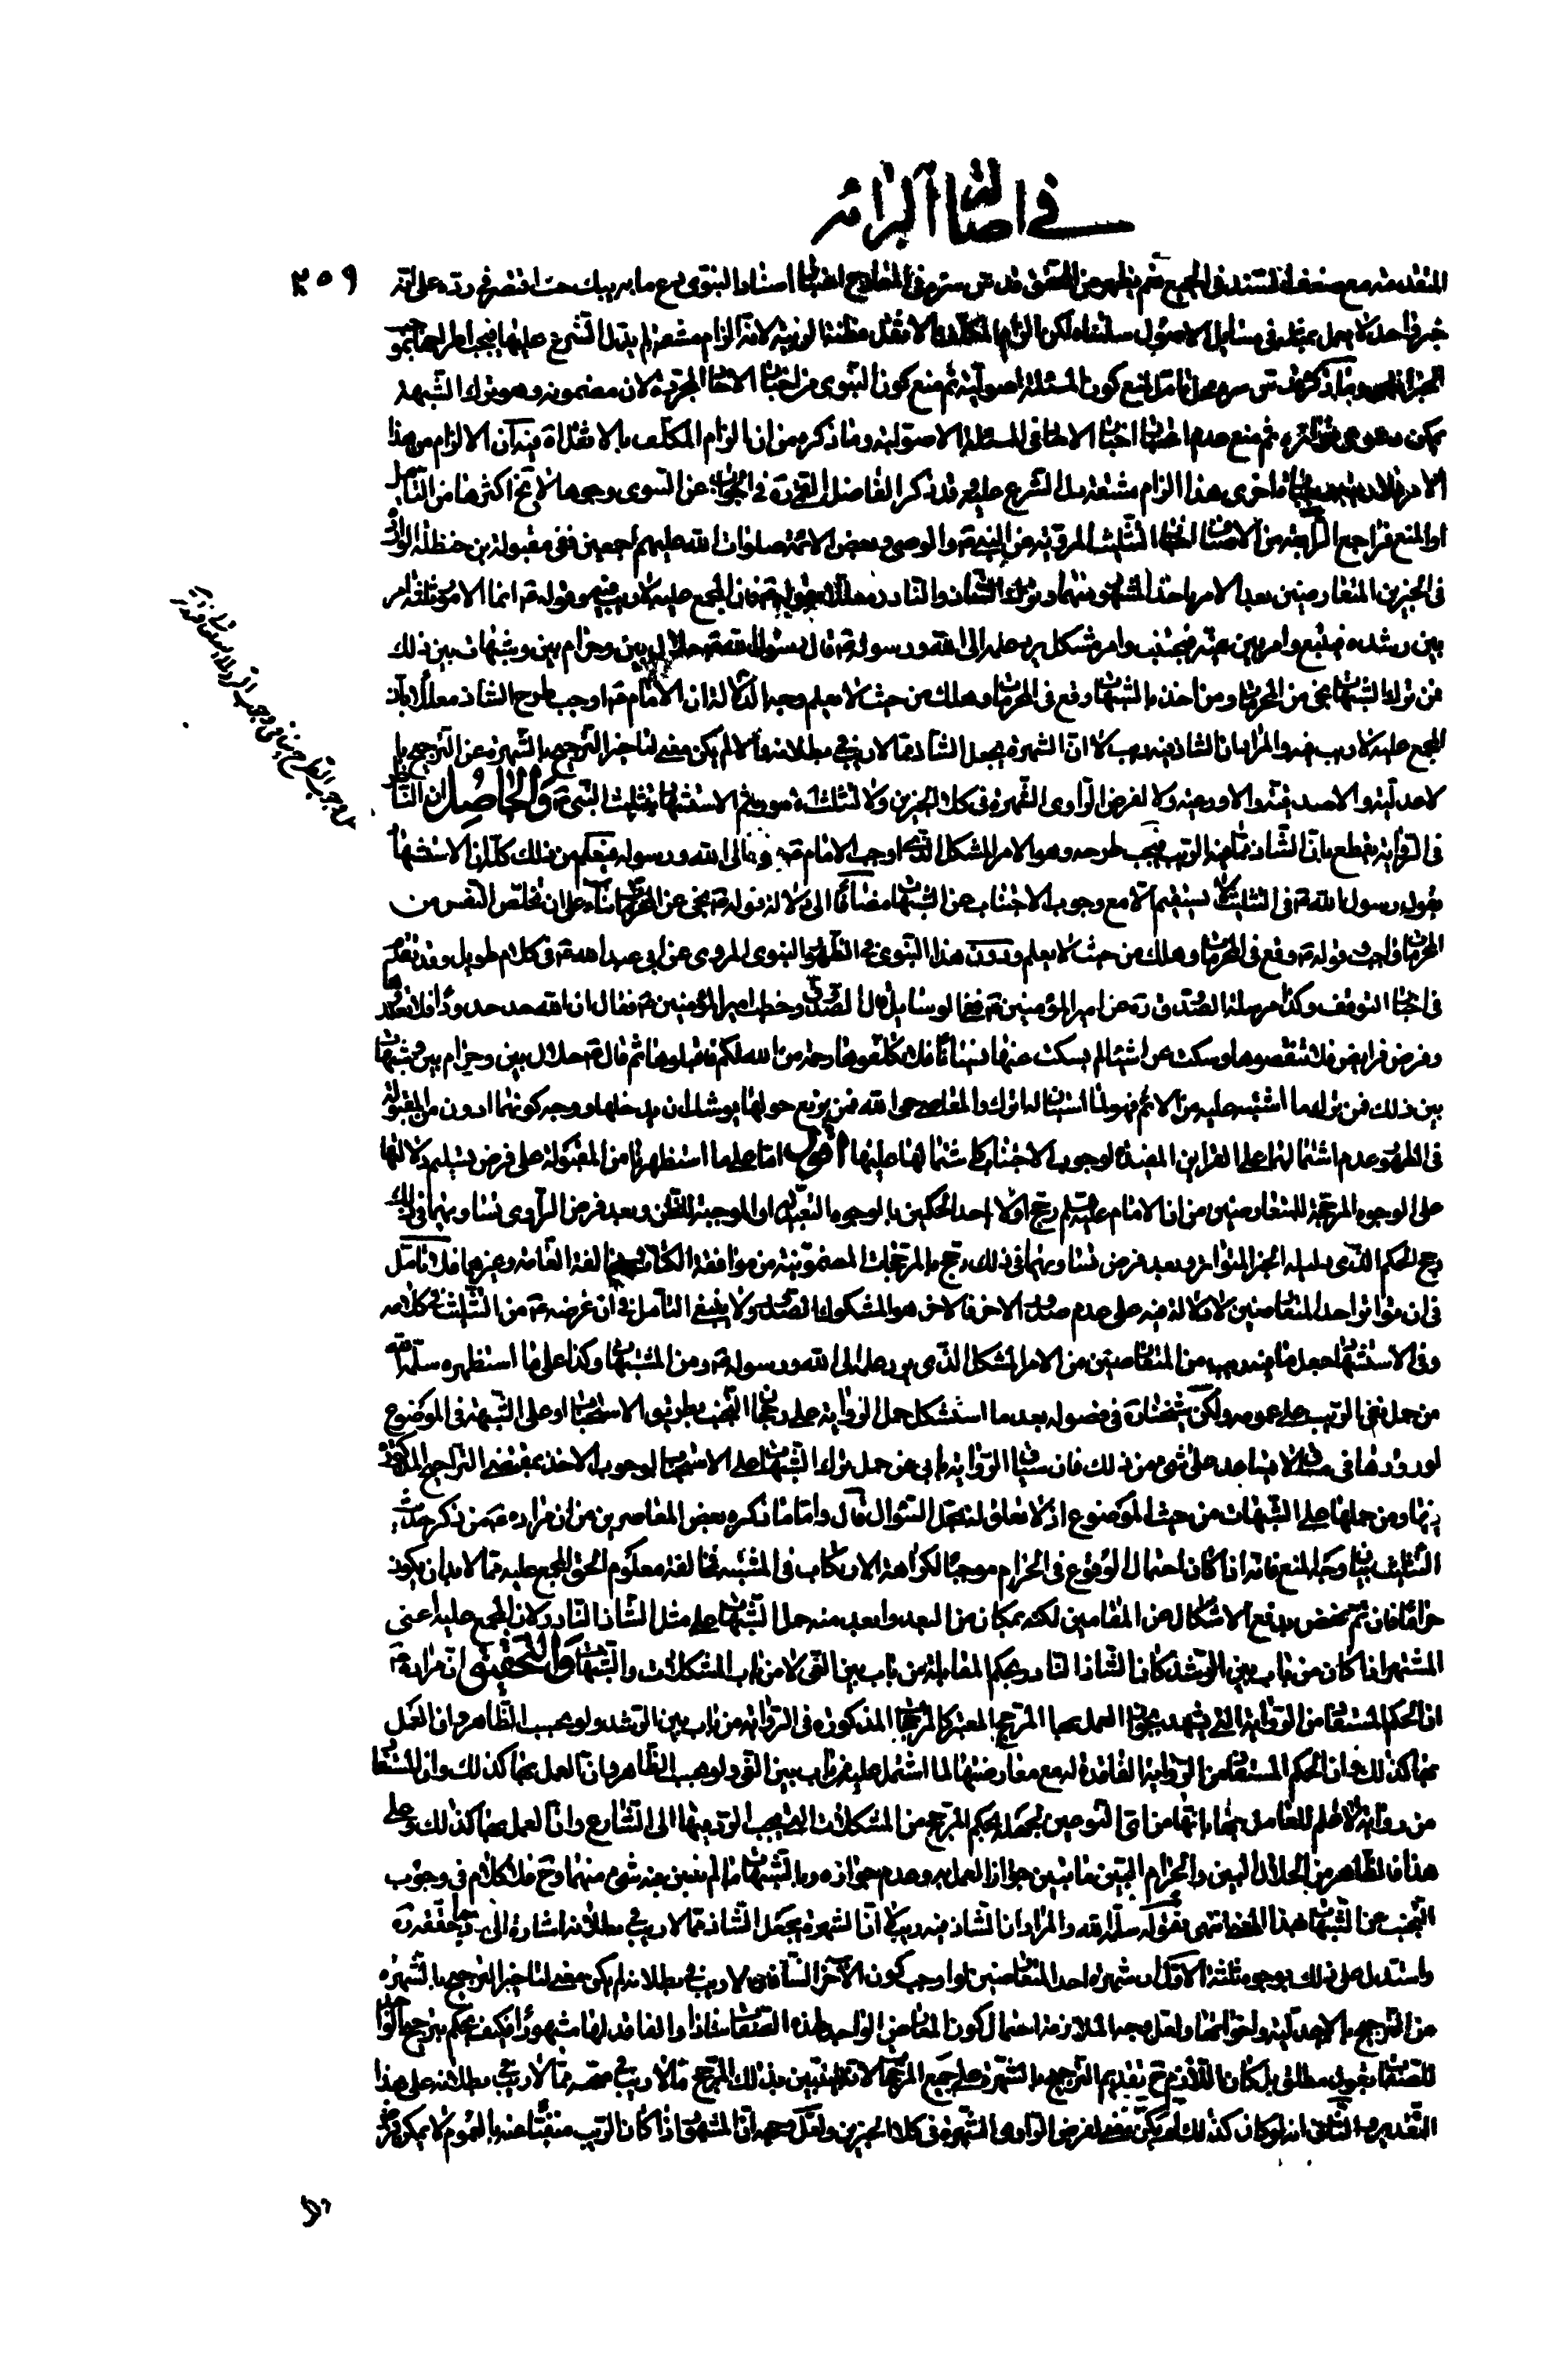 في اصالة البرائة
٣٥٩
المتقدمة مع ضعف المستند في الجميع نعم يظهر من المحقق قدس سره في المعارج اعتبار اسناد النبوى دع ما يريبك حيث اقتصر في رده على انه
خبر واحد لا يعمل بمثله في مسائل الاصول سلمناه لكن الزام المكلف بالاثقل مظنة الريبة لانه الزام مشقة لم يدل الشرع عليها فيجب اطراحها بموجب
الخبر وما ذكره قدس سره محل تأمل لمنع كون المسئلة اصولية ثم منع كون النبوى من اخبار الاحاد المجردة لان مضمونه وهو ترك الشبهة
يمكن دعوى تواتره ثم منع عدم اعتبار اخبار الاحاد في المسئلة الاصولية وما ذكره من ان الزام المكلف بالاثقل اه فيه ان الالزام من هذا
الامر فلا ريبة فيه الزام مشقة لم يدل الشرع عليه وقد ذكر الفاضل في الجواب عن النبوى وجوها لا يخ اكثرها من التأمل
او المنع الرابعة من الاخبار التثليث المروية عن النبى ص والوصى وبعض الائمة صلوات الله عليهم اجمعين ففى مقبولة بن حنظلة الواردة
في الخبرين المتعارضين بعد الامر باخذ المشهور منهما وترك الشاذ والنادر معللا بقوله ع فان المجمع عليه لا ريب فيه وقوله ع انما الامور ثلثة امر
بين رشده فيتبع وامر بين غيه فيجتنب وامر مشكل يرد علمه الى الله ورسوله ص قال رسول الله ص حلال بين وحرام بين وشبهات بين ذلك
فمن ترك الشبهات نجى من المحرمات ومن اخذ بالشبهات وقع في المحرمات وهلك من حيث لا يعلم وجه الدلالة ان الامام ع اوجب طرح الشاذ معللا بان
المجمع عليه لا ريب فيه والمراد ان الشاذ فيه ريب لا ان الشهرة يجعل الشاذ مما لا ريب في بطلانه والا لم يكن معنى لتاخير الترجيح بالشهرة عن الترجيح با
لاعدلية والاصدقية والاورعية ولا لفرض الراوى الشهرة في كلا الخبرين ولا لتثليث الامور ثم الاستشهاد بتثليث النبى ص والحاصل ان الناظر
في الرواية يقطع بان الشاذ مما فيه الريب فيجب طرحه وهو الامر المشكل الذى اوجب الامام ع رده الى الله ورسوله فيعلم من ذلك كله ان الاستشهاد
بقول رسول الله ص في التثليث لا يستقيم الا مع وجوب الاجتناب عن الشبهات مضافا الى دلالة قوله ص نجى من المحرمات بناء على ان تخلص النفس من
المحرمات واجب وقوله ص وقع في المحرمات وهلك من حيث لا يعلم ودون هذا النبوى في الظهور النبوى المروى عن ابى عبد الله ع في كلام طويل وقد تقدم
في اخبار التوقف وكذا مرسلة الصدوق ره عن امير المؤمنين ع ففى الوسائل قال الصدوق وخطب امير المؤمنين ع فقال ان الله حد حدودا فلا تعتدوها
وفرض فرايض فلا تنقصوها وسكت عن اشياء لم يسكت عنها نسيانا فلا تكلفوها رحمة من الله لكم فاقبلوها ثم قال ع حلال بين وحرام بين وشبهات
بين ذلك فمن ترك ما اشتبه عليه من الاثم فهو لما استبان له اترك والمعاصى حمى الله فمن يرتع حولها يوشك ان يدخلها ووجه كونهما ادون من المقبولة
في الظهور عدم اشتمالهما على القراين المفيدة لوجوب الاجتناب كاشتمالها عليها اقول اما على ما استظهرنا من المقبولة على فرض تسليم دلالتها
على الوجوه المرجحة للمتعارضين من ان الامام عليه السلم رجح اولا احد الحكمين بالوجوه التعبدية او الموجبة للظن وبعد فرض الراوى تساويهما في ذلك
رجح الحكم الذى دليله الخبر المتواتر وبعد فرض تساويهما في ذلك رجح بالمرجحات المضمونية من موافقة الكتاب ومخالفة العامة وغيرهما فلا تامل
في ان تواتر احد المتعارضين لا دلالة فيه على عدم صدق الاخر فالاخر هو المشكوك الصدق ولا ينبغى التأمل في ان غرضه ع من التثليث في كلامه
وفى الاستشهاد جعل ما فيه ريب من المتعارضين من الامر المشكل الذى يرد علمه الى الله ورسوله ص ومن المشتبهات وكذا على ما استظهره سلمه الله
من حمل نفى الريب على عمومه ولكن شيخنا ره في فصوله بعد ما استشكل حمل الرواية على رجحان التجنب بطريق الاستحباب او على الشبهة في الموضوع
لورودها في مقام لا يساعد على شىء من ذلك فان سياق الرواية يابى عن حمل ترك الشبهات على الاستحباب لوجوب الاخذ بمقتضى التراجيح المذكورة
فيها ومن حملها على الشبهات من حيث الموضوع اذ لا تعلق له بمحل السؤال قال واما ما ذكره بعض المعاصرين من ان مراده ع من ذكر حديث
التثليث بيان وجه المنع فانه اذا كان احتمال الوقوع في الحرام موجبا لكراهة الارتكاب في المشتبه فمخالفة معلوم الحق المجمع عليه مما لا بد ان يكون
حراما فان تم نهض بدفع الاشكال عن المقامين لكنه بمكان من البعد وابعد منه حمل الشبهات على مثل الشاذ النادر لان المجمع عليه اعنى
المشتهر اذا كان من باب بين الرشد كان الشاذ النادر بحكم المقابلة من باب بين الغى لا من باب المشكلات والشبهات والتحقيق ان مراده ع
ان الحكم المستفاد من الرواية التى يشهد بجواز العمل بها المرجح المعتبر كالمرجحات المذكورة في الرواية من باب بين الرشد ولو بحسب الظاهر وان العمل
بها كذلك وان الحكم المستفاد من الرواية الفاقدة له مع معارضتها لما اشتمل عليه من باب بين الغى ولو بحسب الظاهر وان العمل بها كذلك وان المستفاد
من رواية لا علم للعامل بها بانها من اى النوعين لجهله بحكم المرجح من المشكلات التى يجب الرد فيها الى الشارع وان العمل بها كذلك وعلى
هذا فالظاهر من الحلال البين والحرام البين ما تبين جواز العمل به وعدم جوازه وبالشبهات ما لم يتبين فيه شىء منهما وح فلا كلام في وجوب
التجنب عن الشبهات بهذا المعنى انتهى فقوله سلمه الله والمراد ان الشاذ فيه ريب لا ان الشهرة يجعل الشاذ مما لا ريب في بطلانه اشارة الى رد ما حققه ره
واستدل على ذلك بوجوه ثلثة الاول ان شهرة احد المتعارضين لو اوجب كون الاخر الشاذ مما لا ريب في بطلانه لم يكن معنى لتاخير الترجيح بالشهرة
من الترجيح بالاعدلية واخواتها ولعل وجه الملازمة احتمال كون المعارض الواجد لهذه الصفات شاذا والفاقد لها مشهورا فكيف يحكم بترجيح الواجد
للصفات بقول مطلق بل كان اللازم ح تقديم الترجيح بالشهرة على جميع المرجحات لانه يتبين بذلك المرجح ما لا ريب في صحته مما لا ريب في بطلانه على هذا
التقدير الثانى انه لو كان كذلك لم يكن معنى لفرض الراوى الشهرة في كلا الخبرين ولعل وجهه ان المشهور اذا كان الريب منفيا عنه بالعموم لا يمكن فرض